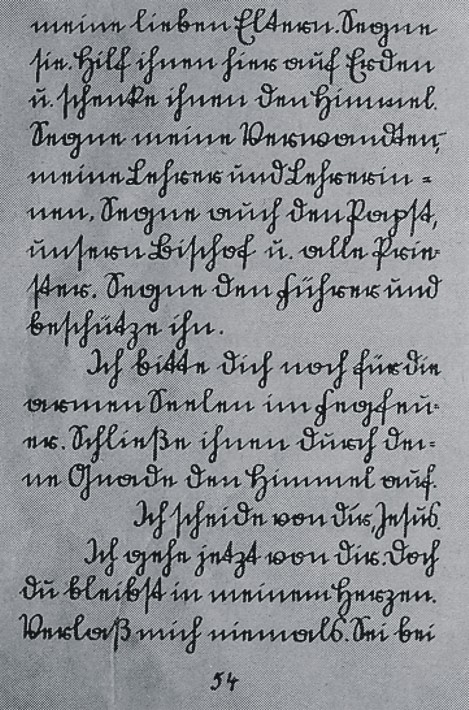 meine lieben Eltern. Segne
sie. Hilf ihnen hier auf Erden
u. schenke ihnen den Himmel.
Segne meine Verwandten,
meine Lehrer und Lehrerin=
nen. Segne auch den Papst,
unsern Bischof u. alle Prie=
ster. Segne den Führer und
beschütze ihn.
Ich bitte dich noch für die
armen Seelen im Fegfeu=
er. Schließe ihnen durch dei=
ne Gnade den Himmel auf.
Ich scheide von dir, Jesus.
Ich gehe jetzt von dir. Doch
du bleibst in meinem Herzen.
Verlaß mich niemals. Sei bei
54